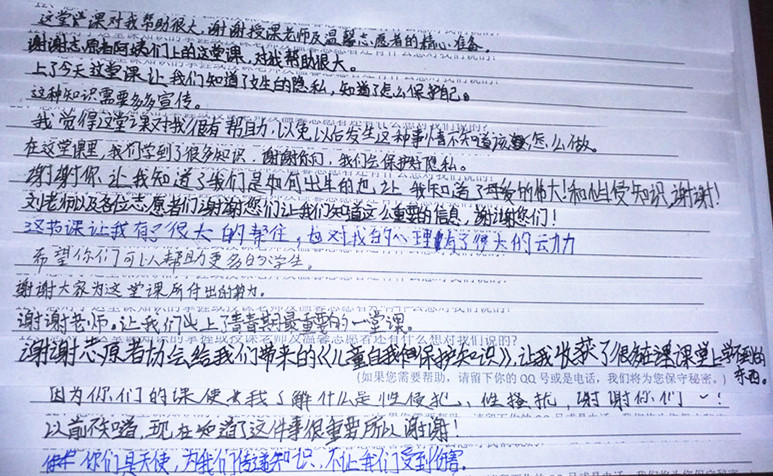 这堂课对我帮助很大，谢谢授课老师及温馨志愿者的精心准备。
谢谢志愿者阿姨们上的这堂课，对我帮助很大。
上了今天这堂课让我们知道了女生的隐私，知道了怎么保护自己。
这种知识需要多多宣传。
我觉得这堂课对我很有帮助，以免以后发生这种事情不知道该怎么做。
在这堂课里，我们学到了很多知识，谢谢你们，我们会保护好隐私。
谢谢你，让我知道了我们是如何出生的也让我知道了母爱的伟大！和性侵知识，谢谢！
刘老师以及各位志愿者们谢谢您们让我们知道这么重要的信息，谢谢您们！
这节课让我有了很大的帮住，也对我的心理有了很大的动力
希望你们可以帮助更多的学生。
谢谢大家为这堂课所付出的努力。
谢谢老师。让我们上了青春期最重要的一堂课。
还有什么想对我们说的？
谢谢志愿者协会给我们带来的《儿童自我保护知识》，让我收获了很多在课堂上学不到的东西。
(如果您需要帮助，请留下你的QQ号或是电话，我们将为您保守秘密。)
因为你们的课使我了解什么是性侵犯、性骚扰，谢谢你们～！
以前不知道，现在知道了这件事很重要所以谢谢！
你们真天使，为我们传递知识，不让我们受到伤害。